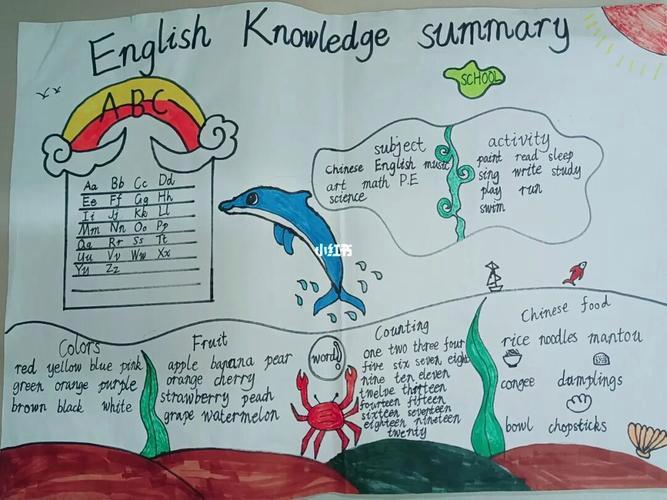 English Knowledge summary
ABC
Aa Bb Cc Dd
Ee Ff Gg Hh
Ii Jj Kk Ll
Mm Nn Oo Pp
Qq Rr Ss Tt
Uu Vv Ww Xx
Yy Zz
SCHOOL
subject
Chinese English music
art math P.E
science
activity
paint read sleep
sing write study
play run
swim
小红书
Colors
red yellow blue pink
green orange purple
brown black white
Fruit
apple banana pear
orange cherry
strawberry peach
grape watermelon
word
Counting
one two three four
five six seven eight
nine ten eleven
twelve thirteen
fourteen fifteen
sixteen seventeen
eighteen nineteen
twenty
Chinese food
rice noodles mantou
congee dumplings
bowl chopsticks